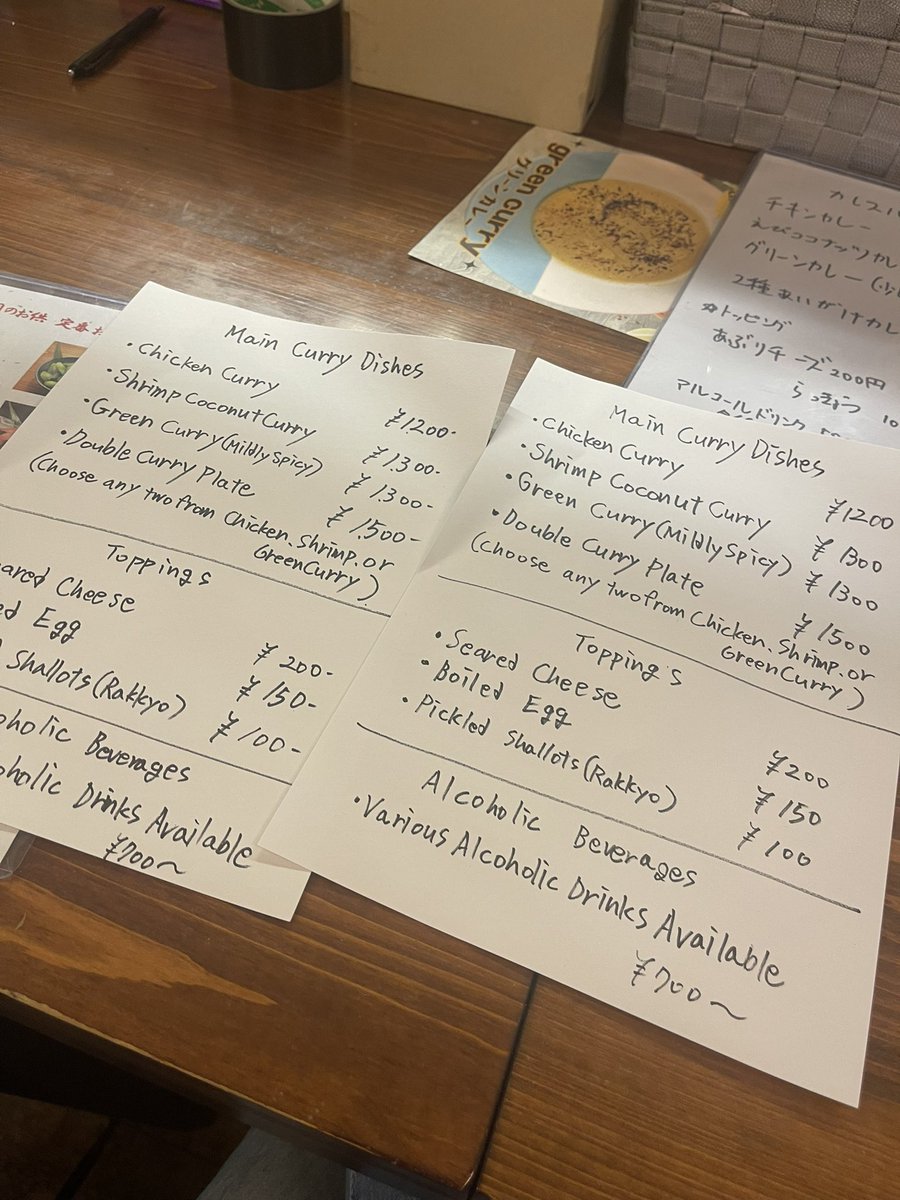 green curry
グリーンカレー
カレ
チキンカレー
えびココナッツカレ
グリーンカレー
2種あいがけカレ
トッピング
あぶりチーズ200円
らっきょう
アルコールドリンク
のお供 定番
Main Curry Dishes
・Chicken Curry ¥1200-
・Shrimp Coconut Curry ¥1300-
・Green Curry (Mildly Spicy) ¥1300-
・Double Curry Plate ¥1500-
(Choose any two from Chicken. Shrimp. or
Green Curry)
Topping's
ared Cheese ¥200-
ed Egg ¥150-
Shallots (Rakkyo) ¥100-
oholic Beverages
oholic Drinks Available
¥700〜
Main Curry Dishes
・Chicken Curry ¥1200
・Shrimp Coconut Curry ¥1300
・Green Curry (Mildly Spicy) ¥1300
・Double Curry Plate ¥1500
(Choose any two from Chicken. Shrimp. or
Green Curry)
Topping's
・Seared Cheese ¥200
・Boiled Egg ¥150
・Pickled Shallots (Rakkyo) ¥100
Alcoholic Beverages
・Various Alcoholic Drinks Available
¥700〜